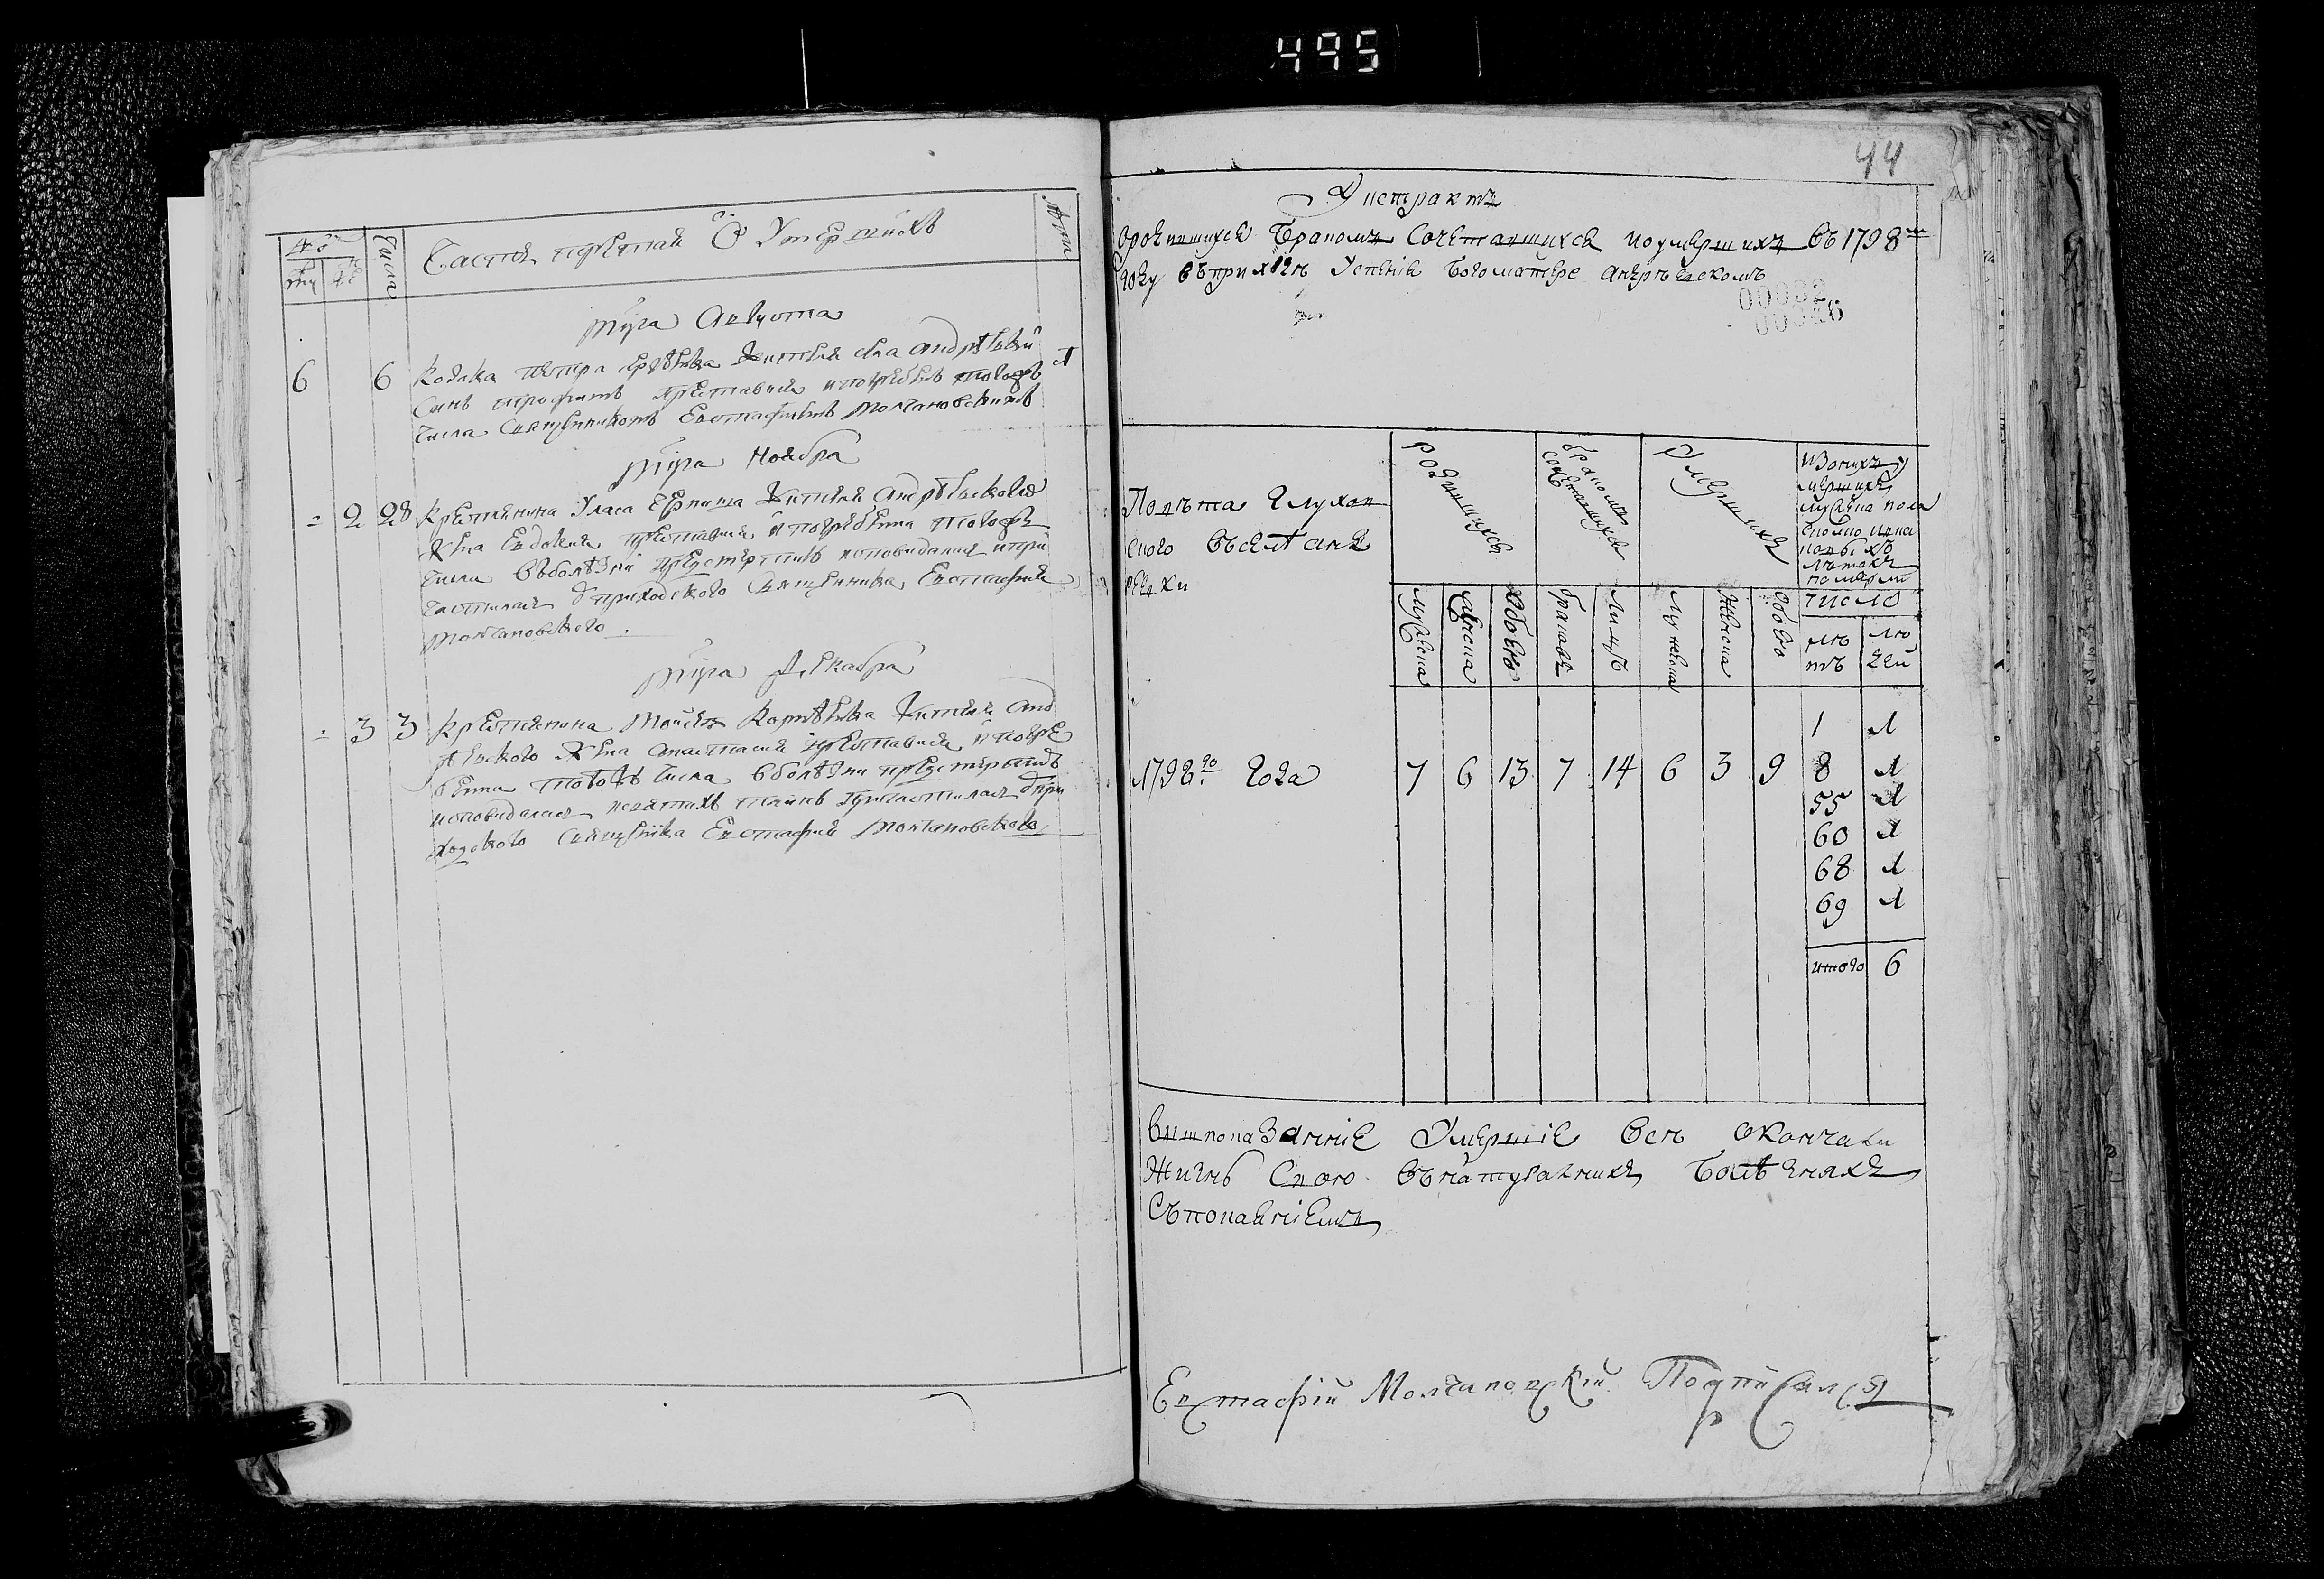 495
Часть третїя Ѡ Умершихъ
Числа
мца Августа
6 6 Козака Петра жителя сна андрѣевки
Синъ трофимъ преставися и погребенъ тогожъ
Числа Священникомъ Евстафиемъ Молчановскимъ
мца Ноября
2 28 Крестянина Уласа жителя андрѣевского
жена Евдокия преставися и погребенна тогожъ
Числа въболѣзни исповидалася и при
частилася ѿ приходского Священника Евстафия
Молчановского
мца Декабря
3 3 Крестянина Мойсея жителя Анд
рѣевского жена анастасия преставися и погре
бенна тогожъ Числа вболѣзни
исповидалася исвятихъ таинъ причастилася ѿ при
ходского Священника Евстафия Молчановского
44
Экстрактъ
ороживших­ся Бракомъ Сочетавшихся и оумершихъ въ 1798м
году въприходѣ Успения Богоматере
00032
00046
Повѣта Глухов
ского Въселѣ анд
рѣевки
Родившихся
бракомъ сочетавшихся
Умершихъ
изонихъ у
мершихъ
мужеска пола
сколко и на
какъ ихъ
лѣтахъ
померли
число
мужеска
женска
обоего
браковъ
Лицъ
мужеска
женска
обоего
лѣтъ
людей
1 1
1798го Года 7 6 13 7 14 6 3 9 8 1
55 1
60 1
68 1
69 1
итого 6
Вишпоказанние Умершие всѣ окончали
Жизнь Свою въ натуралнихъ Болѣзняхъ
Съпокаяниемъ
Евстафій Молчановскій Подписался